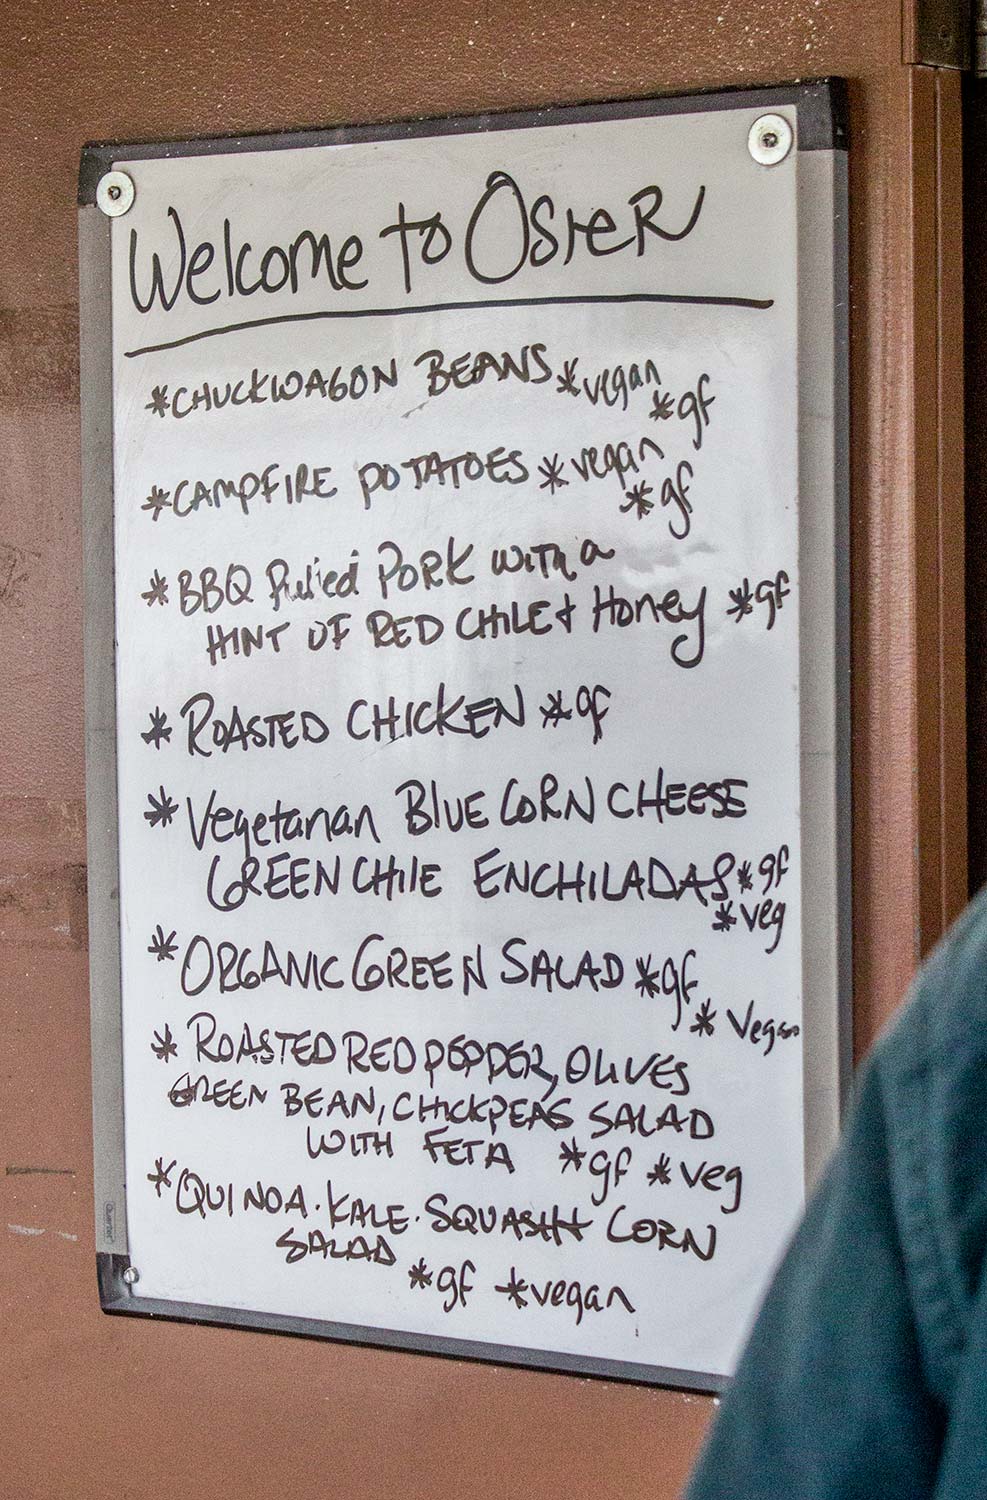 Welcome to Osier
*CHUCKWAGON BEANS *vegan
*gf
*CAMPFIRE POTATOES *vegan
*gf
*BBQ Pulled PORK WITH a
HINT OF RED CHILE + Honey *gf
* ROASTED CHICKEN *gf
* Vegetarian BLUE CORN CHEESE
GREEN CHILE ENCHILADAS *gf
*veg
* ORGANIC GREEN SALAD *gf
* Vegan
* ROASTED RED PEPPER, OLIVES
GREEN BEAN, CHICKPEAS SALAD
WITH FETA *gf *veg
* QUINOA · KALE · SQUASH + CORN
SALAD
*gf *vegan
Quartet